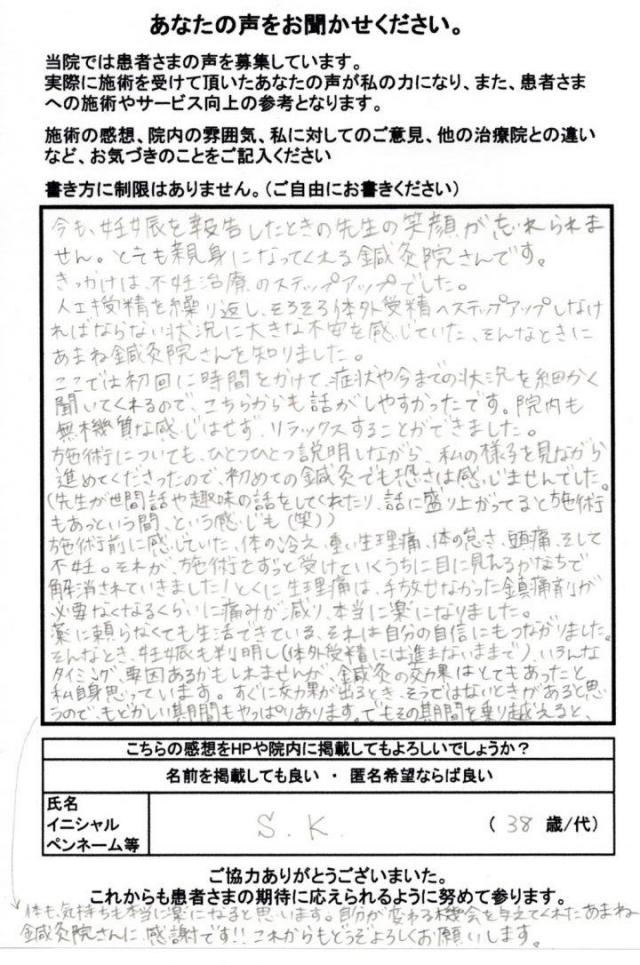 あなたの声をお聞かせください。
当院では患者さまの声を募集しています。
実際に施術を受けて頂いたあなたの声が私の力になり、また、患者さま
への施術やサービス向上の参考となります。
施術の感想、院内の雰囲気、私に対してのご意見、他の治療院との違い
など、お気づきのことをご記入ください
書き方に制限はありません。（ご自由にお書きください）
今も、妊娠を報告したときの先生の笑顔が忘れられま
せん。とても親身になってくれる鍼灸院さんです。
きっかけは、不妊治療のステップアップでした。
人工授精を繰り返し、そろそろ体外受精へステップアップしなけ
ればならない状況に大きな不安を感じていた、そんなときに
あまね鍼灸院さんを知りました。
ここでは初回に時間をかけて、症状や今までの状況を細かく
聞いてくれるので、こちらからも話がしやすかったです。院内も
無機質な感じはせず、リラックスすることができました。
施術についても、ひとつひとつ説明しながら、私の様子を見ながら
進めてくださったので、初めての鍼灸でも恐さは感じませんでした。
（先生が世間話や趣味の話をしてくれたり、話に盛り上がってると施術
もあっという間、という感じも（笑））
施術前に感じていた、体の冷え、重い生理痛、体の怠さ、頭痛、そして
不妊。それが、施術をずっと受けていくうちに目に見えるかたちで
解消されていきました！とくに生理痛は、手放せなかった鎮痛剤が
必要なくなるくらいに痛みが減り、本当に楽になりました。
薬に頼らなくても生活できている、それは自分の自信にもつながりました。
そんなとき、妊娠も判明し（体外受精には進まないままで）、いろんな
タイミング、要因あるかもしれませんが、鍼灸の効果はとてもあったと
私自身思っています。すぐに効果が出るとき、そうではないときがあると思
うので、もどかしい期間もやっぱりあります。でもその期間を乗り越えると、
こちらの感想をHPや院内に掲載してもよろしいでしょうか？
名前を掲載しても良い ・ 匿名希望ならば良い
氏名
イニシャル
ペンネーム等
S. K.
（ 38 歳/代）
ご協力ありがとうございまいた。
これからも患者さまの期待に応えられるように努めて参ります。
体も、気持ちも本当に楽になると思います。自分が変わる機会を与えてくれたあまね
鍼灸院さんに、感謝です！！これからもどうぞよろしくお願いします。